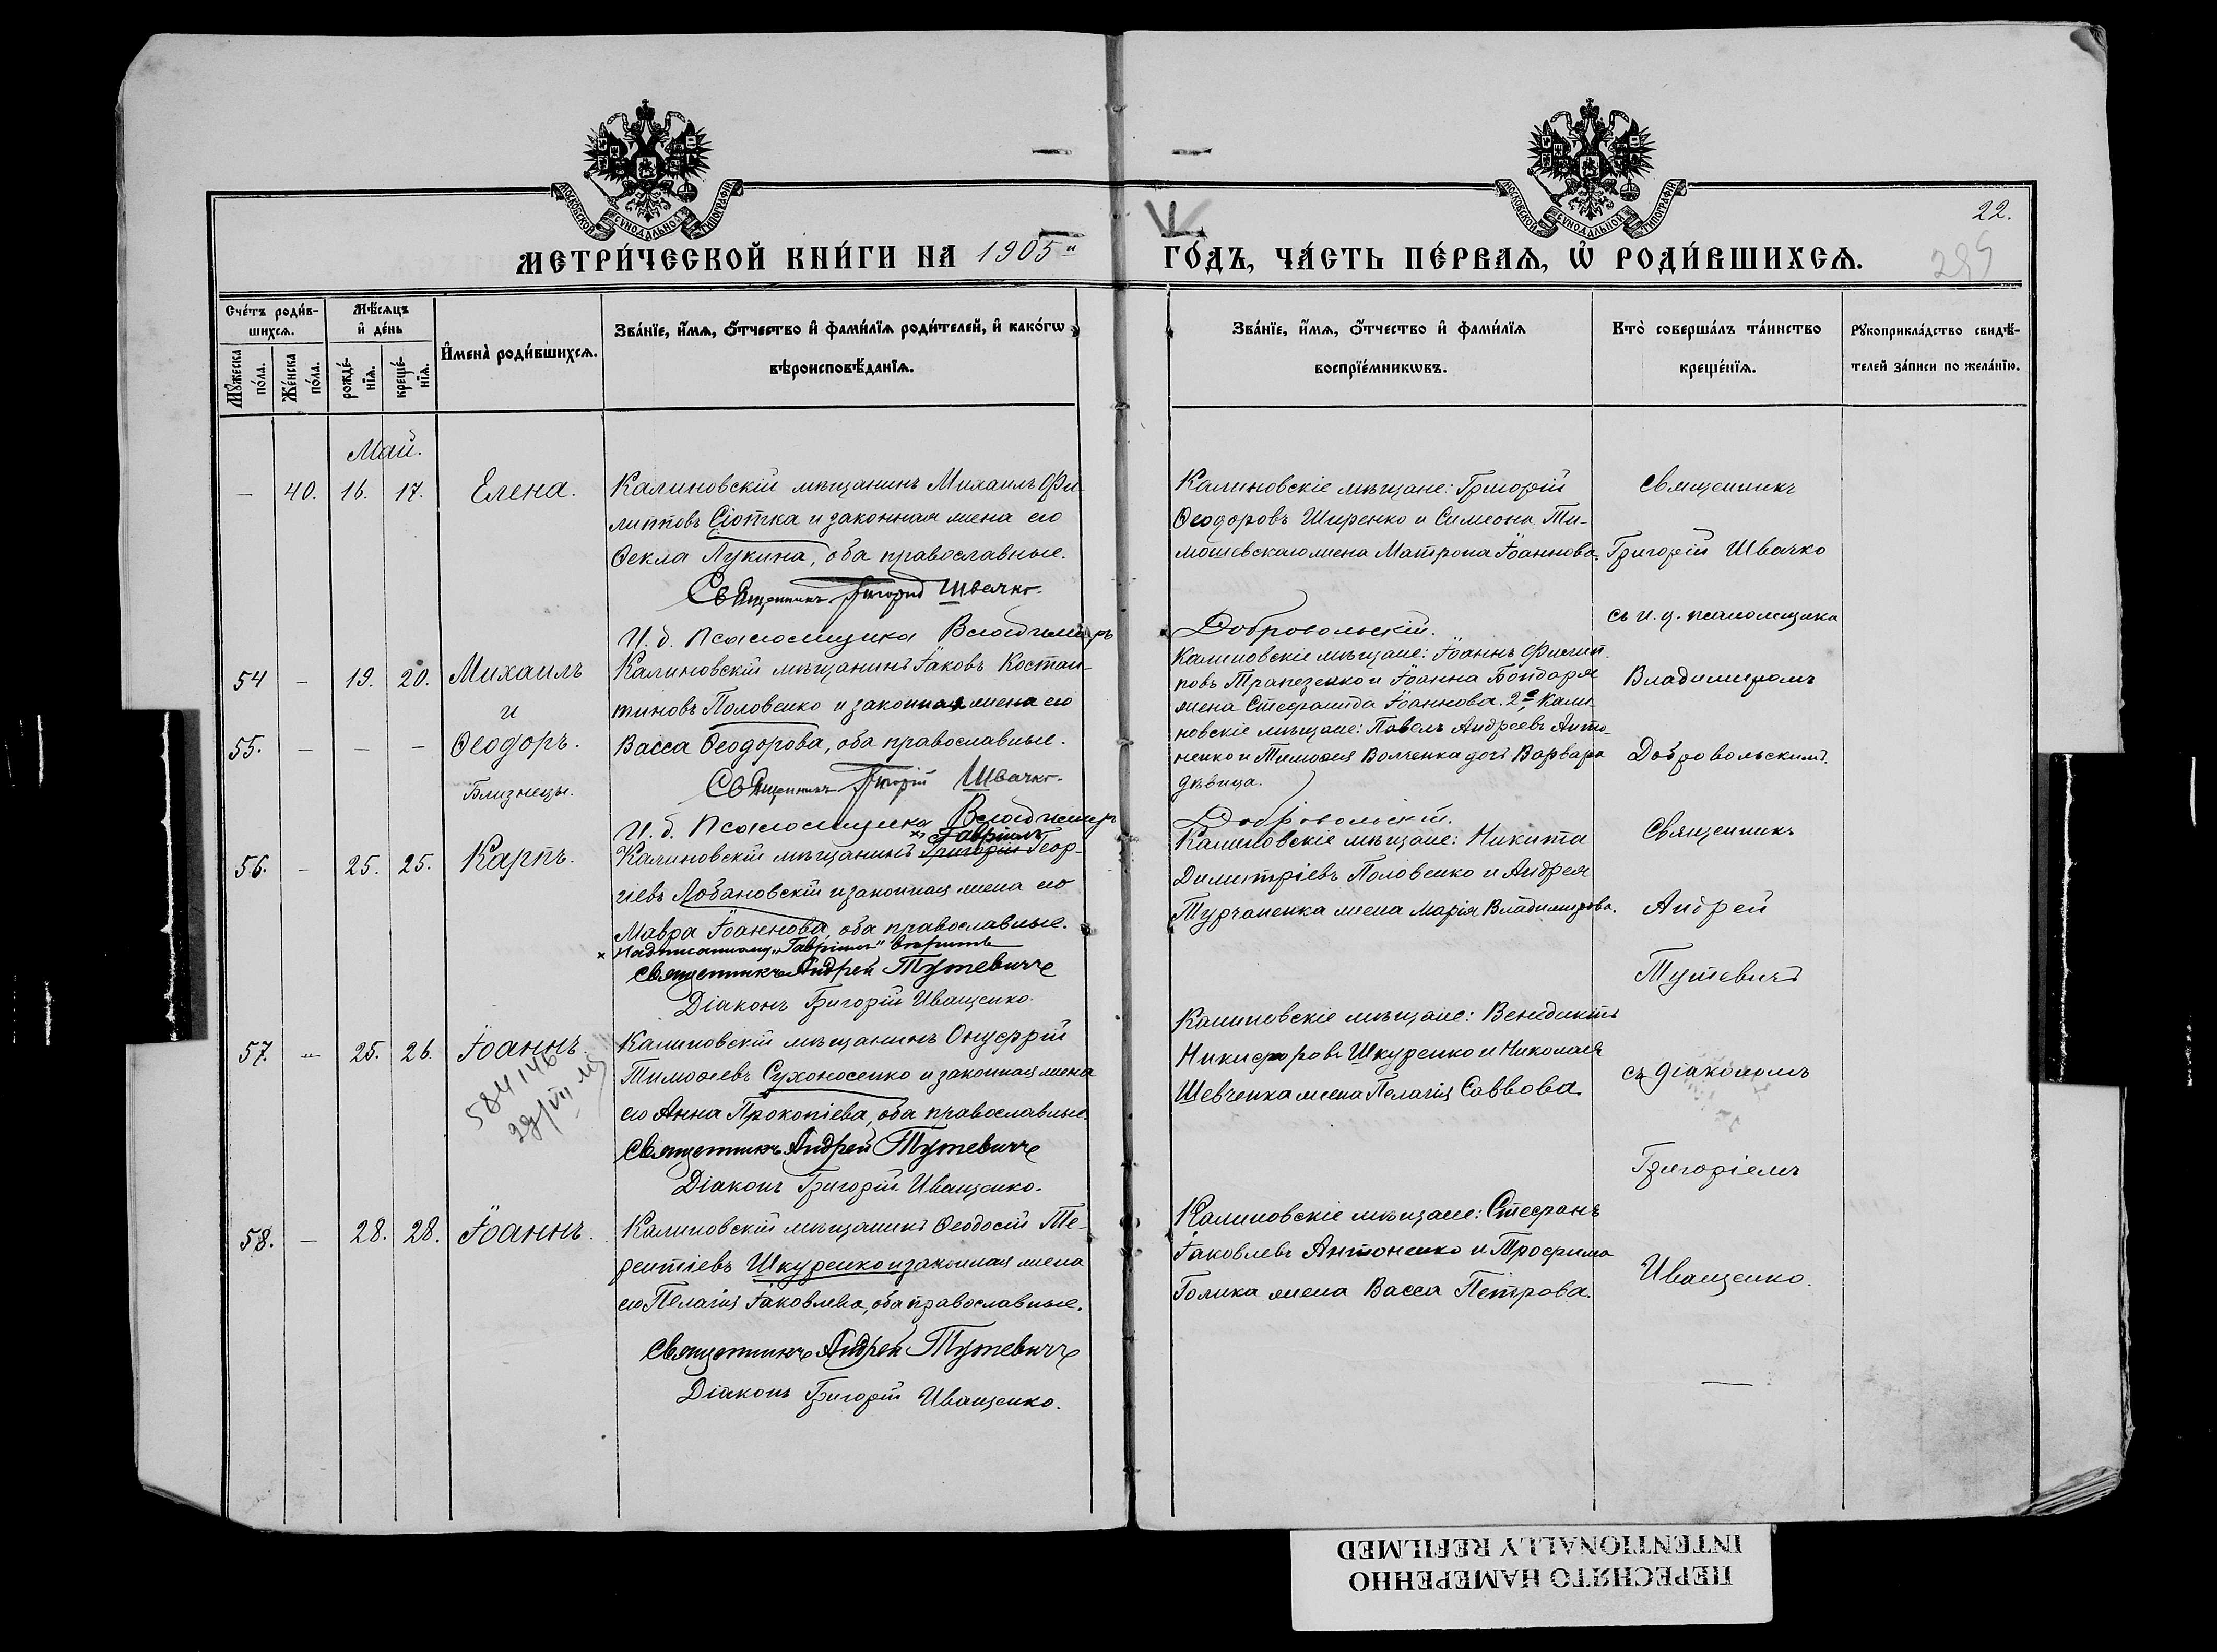 МОСКОВСКОЙ СѴНОДАЛЬНОЙ ТИПОГРАФІИ
МОСКОВСКОЙ СѴНОДАЛЬНОЙ ТИПОГРАФІИ
22.
МЕТРИ́ЧЕСКОЙ КНИ́ГИ НА 1905й ГО́ДЪ, ЧА́СТЬ ПЕ́РВАѦ, Ѡ҆ РОДИ́ВШИХСѦ.
Сче́тъ роди́в-
шихсѧ.
Мꙋ́жеска по́ла.
Же́нска по́ла.
Мѣ́сѧцъ
и҆ де́нь
рожде́-нїѧ.
креще́-нїѧ.
И҆мена̀ роди́вшихсѧ.
Зва́нїе, и҆́мѧ, ѻ҆́тчество и҆ фами́лїѧ роди́телей, и҆ како́гѡ
вѣроисповѣ́данїѧ.
Зва́нїе, и҆́мѧ, ѻ҆́тчество и҆ фами́лїѧ
воспрїе́мникѡвъ.
Кто̀ соверша́лъ та́инство
креще́нїѧ.
Рꙋкоприкла́дство свидѣ́-
телей за́писи по жела́нїю.
Май.
— 40. 16. 17. Елена.
Калиновскій мѣщанинъ Михаилъ Фи-
липповъ Сіотка и законная жена его
Ѳекла Лукина, оба православные.
Священникъ Григорій Швачко.
И. д. псаломщика Владимиръ Добровольскій.
Калиновскіе мѣщане: Григорій
Ѳеодоровъ Ширенко и Симеона Ти-
мошевскаго жена Матрона Іоаннова.
Священникъ
Григорій Швачко
съ и. д. псаломщика
Владимиромъ
Добровольскимъ.
54 — 19. 20. Михаилъ
и
55. — — — Ѳеодоръ.
Близнецы.
Калиновскій мѣщанинъ Іаковъ Костан-
тиновъ Половенко и законная жена его
Васса Ѳеодорова, оба православные.
Священникъ Григорій Швачко.
И. д. псаломщика Владимиръ Добровольскій.
Калиновскіе мѣщане: Іоаннъ Филип-
повъ Трапезенко и Іоанна Бондаря
жена Стефанида Іоаннова. 2е, Кали-
новскіе мѣщане: Павелъ Андреевъ Анто-
ненко и Тимоѳея Волченка дочь Варвара
дѣвица.
56. — 25. 25. Карпъ.
х) Гавріилъ
Калиновскій мѣщанинъ Григорій Геор-
гіевъ Лобановскій и законная жена его
Мавра Іоаннова, оба православные.
х Надписанному „Гавріилъ" вѣрить
Священникъ Андрей Тутевичъ
Діаконъ Григорій Иващенко.
Калиновскіе мѣщане: Никита
Димитріевъ Половенко и Андрея
Турчаненка жена Марія Владимирова.
Священникъ
Андрей
Тутевичъ
съ діакономъ
Григоріемъ
Иващенко.
57. — 25. 26. Іоаннъ.
Калиновскій мѣщанинъ Онуфрій
Тимоѳеевъ Сухоносенко и законная жена
его Анна Прокопіева, оба православные.
Священникъ Андрей Тутевичъ
Діаконъ Григорій Иващенко.
Калиновскіе мѣщане: Венедиктъ
Никифоровъ Шкуренко и Николая
Шевченка жена Пелагія Саввова.
58. — 28. 28. Іоаннъ.
Калиновскій мѣщанинъ Ѳеодосій Те-
рентіевъ Шкуренко и законная жена
его Пелагія Іаковлева, оба православные.
Священникъ Андрей Тутевичъ
Діаконъ Григорій Иващенко.
Калиновскіе мѣщане: Стефанъ
Іаковлевъ Антоненко и Трофима
Голика жена Васса Петрова.
ПЕРЕСНЯТО НАМЕРЕННО
INTENTIONALLY REFILMED